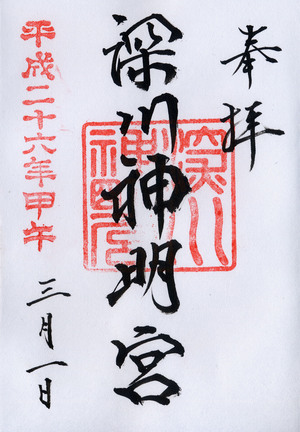 奉拝
深川神明宮
深川神明宮
平成二十六年甲午
三月一日